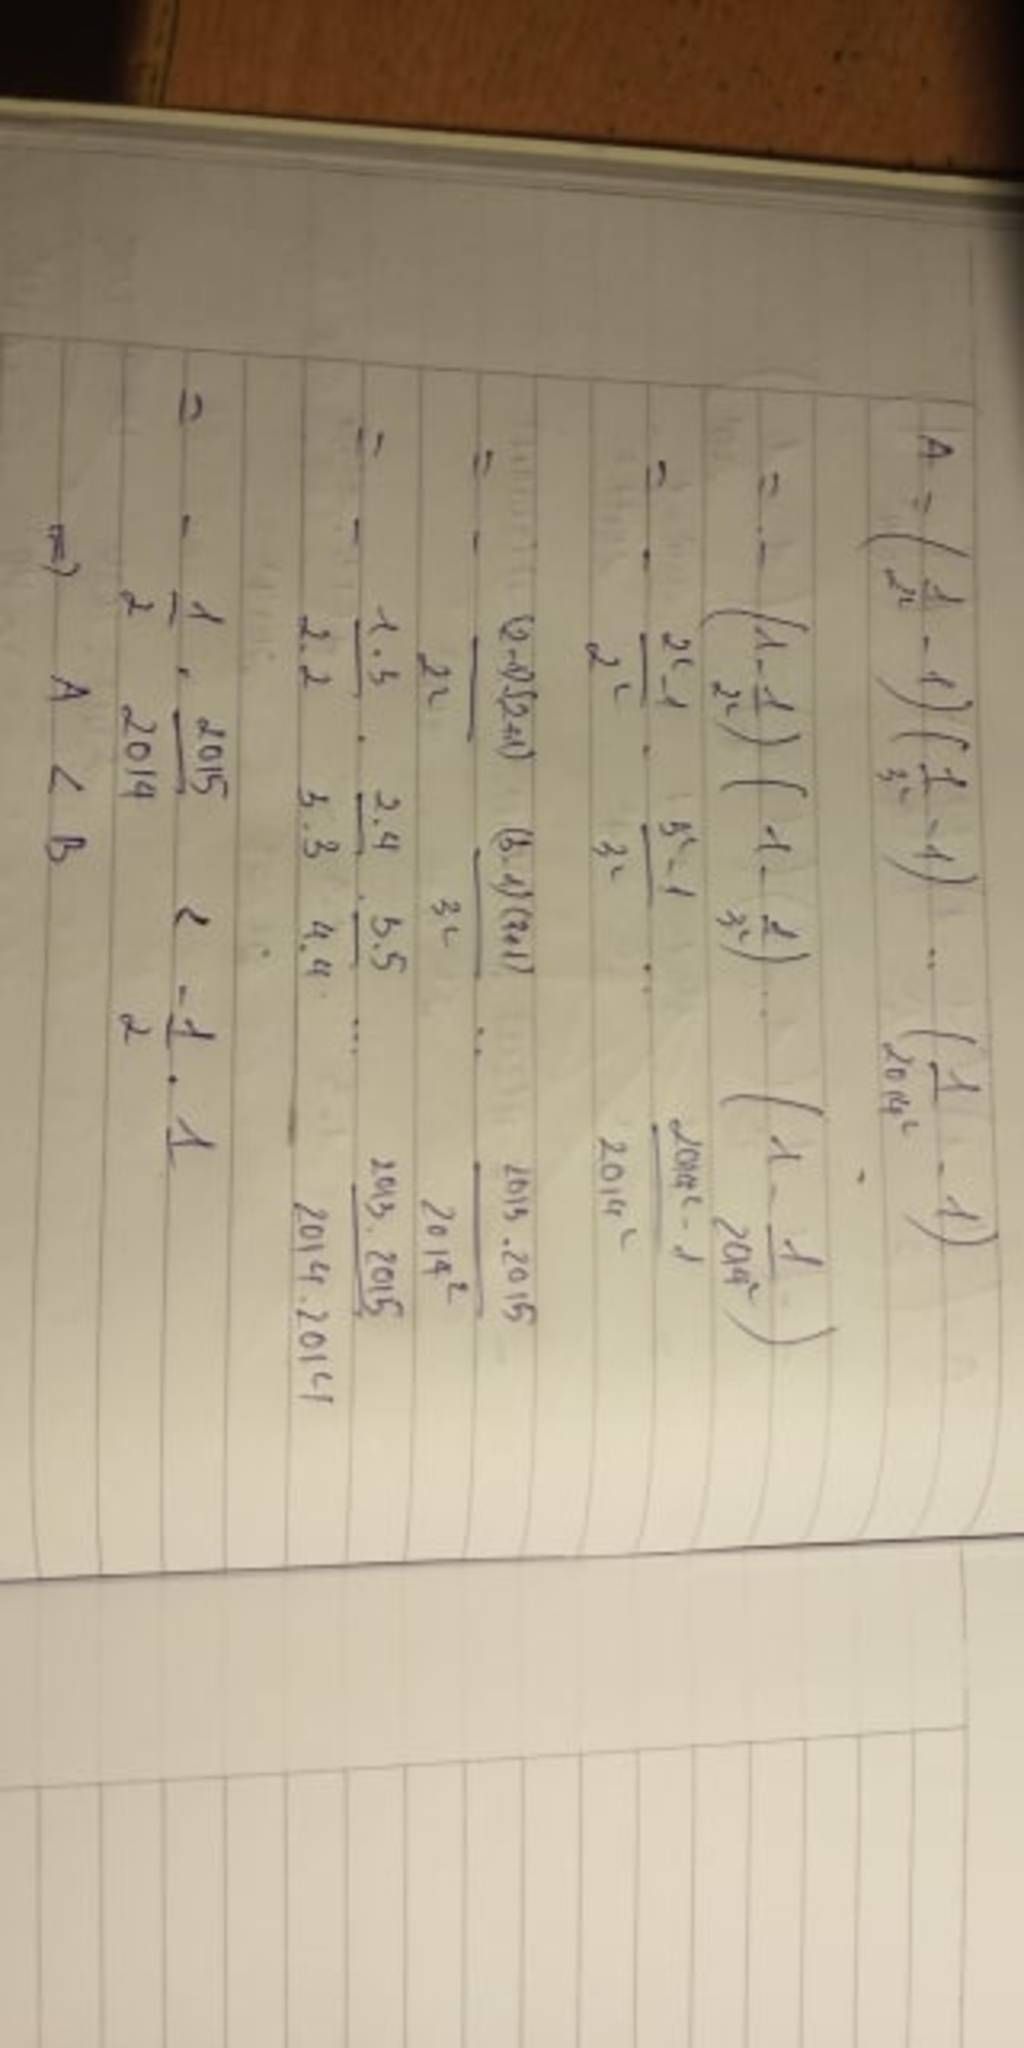 A = (1/2² - 1)(1/3² - 1) ... (1/2014² - 1)
= - (1 - 1/2²)(1 - 1/3²) ... (1 - 1/2014²)
= - 2²-1/2² . 3²-1/3² ... 2014²-1/2014²
= - (2-1)(2+1)/2² (3-1)(3+1)/3² ... 2013.2015/2014²
= - 1.3/2.2 . 2.4/3.3 . 3.5/4.4 ... 2013.2015/2014.2014
= - 1/2 . 2015/2014 < - 1/2 . 1
=) A < B